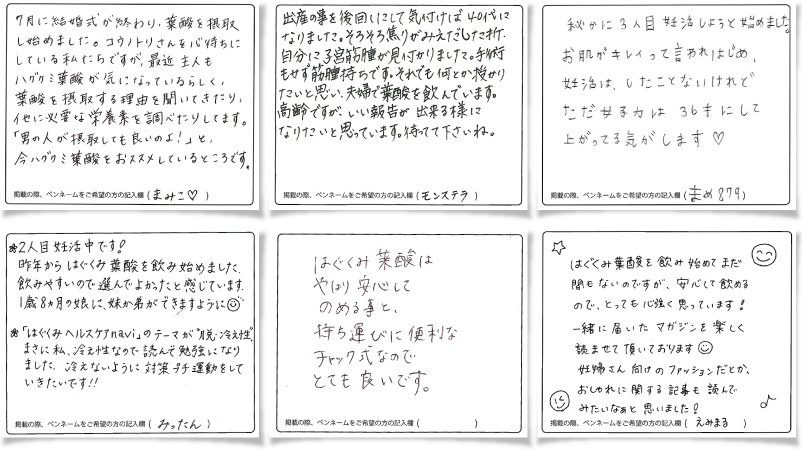 7月に結婚式が終わり、葉酸を摂取
し始めました。コウノトリさんを心待ちに
している私たちですが、最近 主人も
ハグクミ葉酸が気になっているらしく、
葉酸を摂取する理由を聞いてきたり、
他に必要な栄養素を調べたりしてます。
「男の人が摂取しても良いのよ!」と、
今ハグクミ葉酸をおススメしているところです。
掲載の際、ペンネームをご希望の方の記入欄 ( まみこ♡ )
出産の事を後回しにして気付けば40代に
なりました。そろそろ焦りがみえだした折、
自分に子宮筋腫が見付かりました。手術
もせず筋腫持ちです。それでも何とか授かり
たいと思い、夫婦で葉酸を飲んでいます。
高齢ですが、いい報告が出来る様に
なりたいと思っています。待ってて下さいね。
掲載の際、ペンネームをご希望の方の記入欄 ( モンステラ )
秘かに3人目妊活しようと始めました。
お肌がキレイって言われはじめ、
妊活は、したことないけれど
ただ女子力は 36才にして
上がってる気がします♡
掲載の際、ペンネームをご希望の方の記入欄 ( まめ879 )
※2人目妊活中です!
昨年から はぐくみ葉酸を飲み始めました。
飲みやすいので選んでよかったと感じています。
1歳8ヵ月の娘に、妹か弟ができますように
※「はぐくみヘルスケアnavi」のテーマが"脱・冷え性"
まさに私、冷え性なので読んで勉強になり
ました。冷えないように対策プチ運動をして
いきたいです!!
掲載の際、ペンネームをご希望の方の記入欄 ( みったん )
はぐくみ葉酸は
やはり安心して
のめる事と、
持ち運びに便利な
チャック式なので
とても良いです。
掲載の際、ペンネームをご希望の方の記入欄 ( )
はぐくみ葉酸を飲み始めてまだ
間もないのですが、安心して飲める
ので、とっても心強く思っています!
一緒に届いたマガジンを楽しく
読ませて頂いております
妊婦さん向けのファッションだとか、
おしゃれに関する記事も読んで
みたいなぁと思いました!
掲載の際、ペンネームをご希望の方の記入欄 ( えみまる )